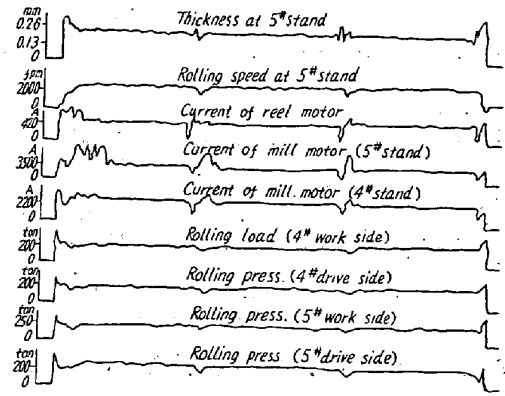 mm
0.26
0.13
0
Thickness at 5# stand
fpm
2000
0
Rolling speed at 5# stand
A
420
0
Current of reel motor
A
3500
0
Current of mill motor (5# stand)
A
2200
0
Current of mill motor (4# stand)
ton
200
0
Rolling load (4# work side)
ton
200
0
Rolling press. (4# drive side)
ton
250
0
Rolling press. (5# work side)
ton
200
0
Rolling press (5# drive side)